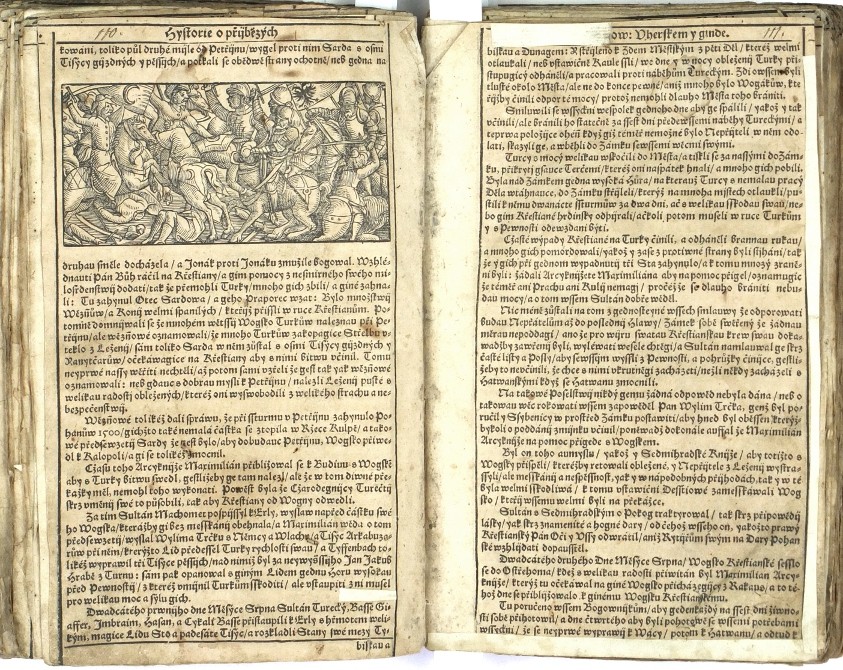 110.
Hystorie o přijběžých
kowani, toliko půl druhé mijle od Petřijnu/wygel proti nim Sarda s osmi
Tisýcy gijzdných y pěssých/a potkali se obědwě strany ochotně/neb gedna na
druhau směle docházela/a Jonák proti Jonáku zmužile bogowal. Wzhlé-
dnauti Pán Bůh ráčil na Křestiany/a gim pomocy z nesmírného swého mi-
losrdenstwij dodati/tak že přemohli Turky/mnoho gich zbili/a giné zahna-
li: Tu zahynul Otec Sardowa/a geho Praporec wzat: Bylo množstwij
Wězňůw/a Konij welmi spanilých/kteřijž přissli w ruce Křestianům. Po-
tomně domnijwali se že mnohem wětssij Wogsko Turkůw naleznau při Pe-
třijnu/ale wězňowé oznamowali/že mnoho Turkůw zakopagice Střelbu v-
teklo z Leženij/sám toliko Sarda w něm zůstal s osmi Tisýcy gijzdných y
Ranytčarůw/očekáwagice na Křestiany aby s nimi bitwu včinil. Tomu
neyprwé nassy wěřiti nechtěli/až potom sami vzřeli že gest tak yak wězňowé
oznamowali: neb gdauc s dobrau mysli k Petřijnu/nalezli Leženij pusté s
welikau radostij obležených/kteréž oni wyswobodili z welikého strachu a ne-
bezpečenstwij.
Wězňowé tolikéž dali spráwu/že při ssturmu v Petřijnu zahynulo Po-
hanůw 1500/gichžto také nemalá částka se ztopila w Ržece Kulpě/a tako-
wé předsewzetij Sardy že gest bylo/aby dobudauc Petřijnu/Wogsko přiwe-
dl k Kalopoli/a gi se tolikéž zmocnil.
Času toho Arcykniže Maximilián přibližowal se k Budinu s Wogski
aby s Turky bitwu swedl/gestližeby ge tam nalezl/ale že w tom diwné pře-
kážky měl/nemohl toho wykonati. Powěst byla že Czarodegnijcy Turečtij
skrz vměnij swé to působili/tak aby Křestiany od Wogny odwedli.
Za tijm Sultán Machomet pospijssyl k Erly/wyslaw napřed částku swé-
ho Wogska/kterážby gi bez messkánij obehnala/a Maximilián wěda o tom
předsewzetij/wyslal Wylima Trčku s Němcy a Wlachy/a Tisýc Arkabuze-
růw při něm/kterýžto Lid předessel Turky rychlostij swau/a Tyffenbach to-
likéž wyprawil tři Tisýce pěssých/nad nimiž byl za neywyžssijho Jan Jakub
Hrabě z Turnu: sám pak opanowal s giným Lidem gednu Horu wysokau
před Pewnostij/z kteréž vmijnil Turkům sskoditi/ale wstaupiti z ni musel
pro welikau moc a sýlu gich.
Dwadcatého prwnijho dne Měsýce Srpna Sultán Turecký/Basse Gi-
affer, Imbraim, Hasan, a Cykala Basse přistaupili k Erly s hřmotem weli-
kým, magice Lidu Sto a padesáte Tisýc/a rozkladli Stany swé mezy Ty-
biskau a
ow. Vherskem y ginde.
111.
biskau a Dunagem: Rstřijleno k Zdem Městským z pěti Děl/kteréž welmi
otlaukali/neb vstawičně Kaule ssli/we dne y w nocy obleženij Turky při-
stupugicý odháněli/a pracowali proti náběhům Tureckým. Zdi owssem byli
tlusté okolo Města/ale ne do konce pewné/aniž mnoho bylo Wogákůw, kte-
řijžby činili odpor té mocy/protož nemohli dlauho Města toho brániti.
Smluwili se wssyckni wespolek gednoho dne aby ge spálili/yakož y tak
včinili/ale bránili ho statečně za ssest dnij předewssemi náběhy Tureckými/a
teprwa položijce oheň když giž téměř nemožné bylo Nepřijteli w něm odo-
lati, skazyli ge, a wběhli do Zámku sewssemi wěcmi swými.
Turcy s mocý welikau wskočili do Města/a tiskli se za nassými do Zám-
ku, přikrytj gsauce Terčemi/kteréž oni naspátek hnali/a mnoho gich pobili.
Byla nad Zámkem gedna wysoká Hůra/na kterauž Turcy s nemalau pracý
Děla wtáhnauce, do Zámku střijleli/kterýž na mnoha mijstech otlaukli/pu-
stili k nimu dwanácte ssturmůw za dwa dni, ač s welikau sskodau swau/ne-
bo gim Křestiané hrdinsky odpijrali/ačkoli potom museli w ruce Turkům
y s Pewnosti odewzdáni býti.
Cžasté wýpady Křestiané na Turky činili, a odháněli brannau rukau/
a mnoho gich pomordowali/yakož y zase z protiwné strany byli stijháni/tak
že y gich při gednom wypadnutij tři Sta zahynulo/a k tomu mnozý zraně-
ni byli: žádali Arcyknižete Maximiliána aby na pomoc přigel/oznamugic
že téměř ani Prachu ani Kulij nemagi/pročež že se dlauho brániti nebu-
dau mocy/a o tom wssem Sultán dobře wěděl.
Nic méně zůstali na tom z gednosteyné wssech smluwy že odporowati
budau Nepřátelům až do poslednij Hlawy/Zámek sobě swěřený že žádnau
měrau nepoddagi/ano že pro wijru swatau Křestianskau krew swau doka-
wadžby zawřeni byli, wyléwati wesele chtěgi/a Sultán namlauwal ge skrz
časté listy a Posly/aby sewssým wyssli z Pewnosti, a pohrůžky činijce, gestli-
žeby to nevčinili, že chce s nimi vkrutněgi zacházeti/nežli někdy zacházeli s
Hatwanskými když se Hatwanu zmocnili.
Na takowé Poselstwij nikdý gemu žádná odpowěd nebyla dána/neb o
takowau wěc rokowati wssem zapowěděl Pan Wylim Trčka, genž byl po-
ručil y Ssybenicy w prostřed Zámku postawiti/aby hned byl oběssen kterýž-
bykoli o poddání zmijnku včinil/poněwadž dokonale auffal že Maximilian
Arcykniže na pomoc přigede s Wogskem.
Byl on toho aumyslu/yakož y Sedmihradské Kniže/aby totižto s
Wogsky přispěli/kteréžby retowali obležené, y Nepřijtele z Leženij wystra-
ssyli/ale messkánij a nespěssnost/yak y w nápodobných přijhodách/tak y w té
byla welmi sskodliwá/k tomu vstawičnij Desstiowé zamesskáwali Wog
sko/kteřij wssemu welmi byli na překážce.
Sultán s Sedmihradským o Pokog traktyrował/tak skrz připowědi
lásky/yak skrz znamenité a hogné dary/od čehož wsseho on/yakožto prawý
Křestianský Pán Oči y Vssy odwrátil/aniž Rytijřům swým na Dary Pohan-
ské wzhlijdati dopauštěl.
Dwadcátého druhého Dne Měsýce Srpna/Wogsko Křestianské sesslo
se do Ostřehoma/kdež s welikau radostij přiwitán byl Maximilian Arcy-
kniže/kterýž tu očekáwal na giné Wogsko přicházegijcý z Rakaus/a to té-
hož dne se přibližowalo k ginému Wogsku Křestianskému.
Tu poručeno wssem Bogownijkům/aby gedenkaždý na ssest dnij žiwno-
sti sobě přihotowil/a dne čtwrtého aby byli pohotowě se wssemi potřebami
wssyckni/že se neyprwé wyprawij k Wácy/potom k Hatwanu/a odtud k